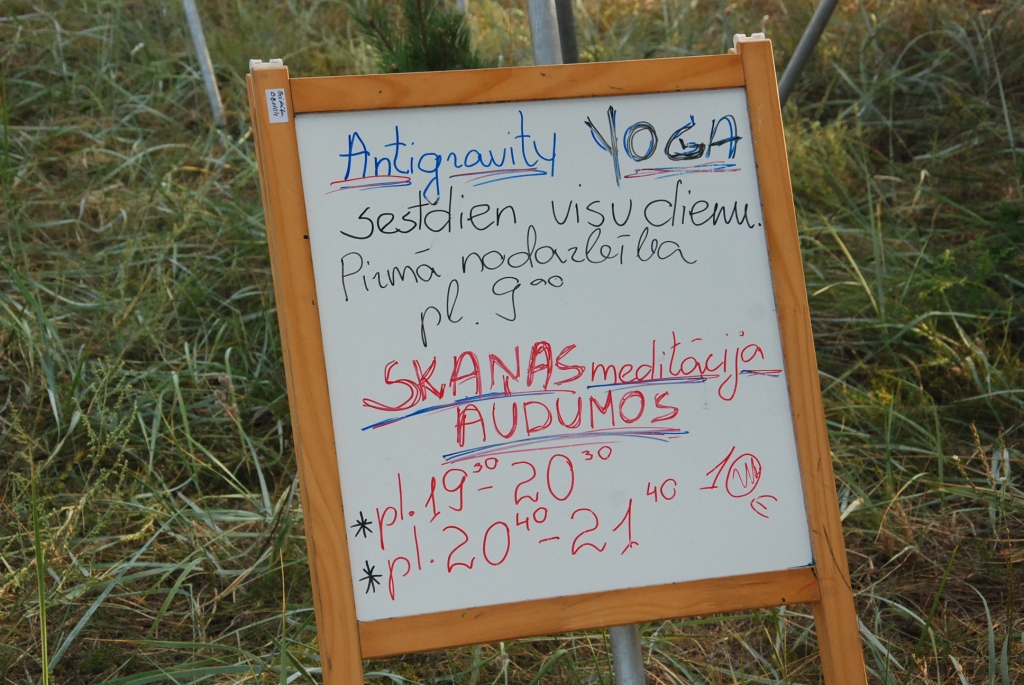 Antigravity YOGA
sestdien visu dienu.
Pirmā nodarbība
pl. 9⁰⁰
SKAŅAS meditācija
AUDUMOS
* pl. 19³⁰ - 20³⁰
* pl. 20⁴⁰ - 21⁴⁰ 10 €